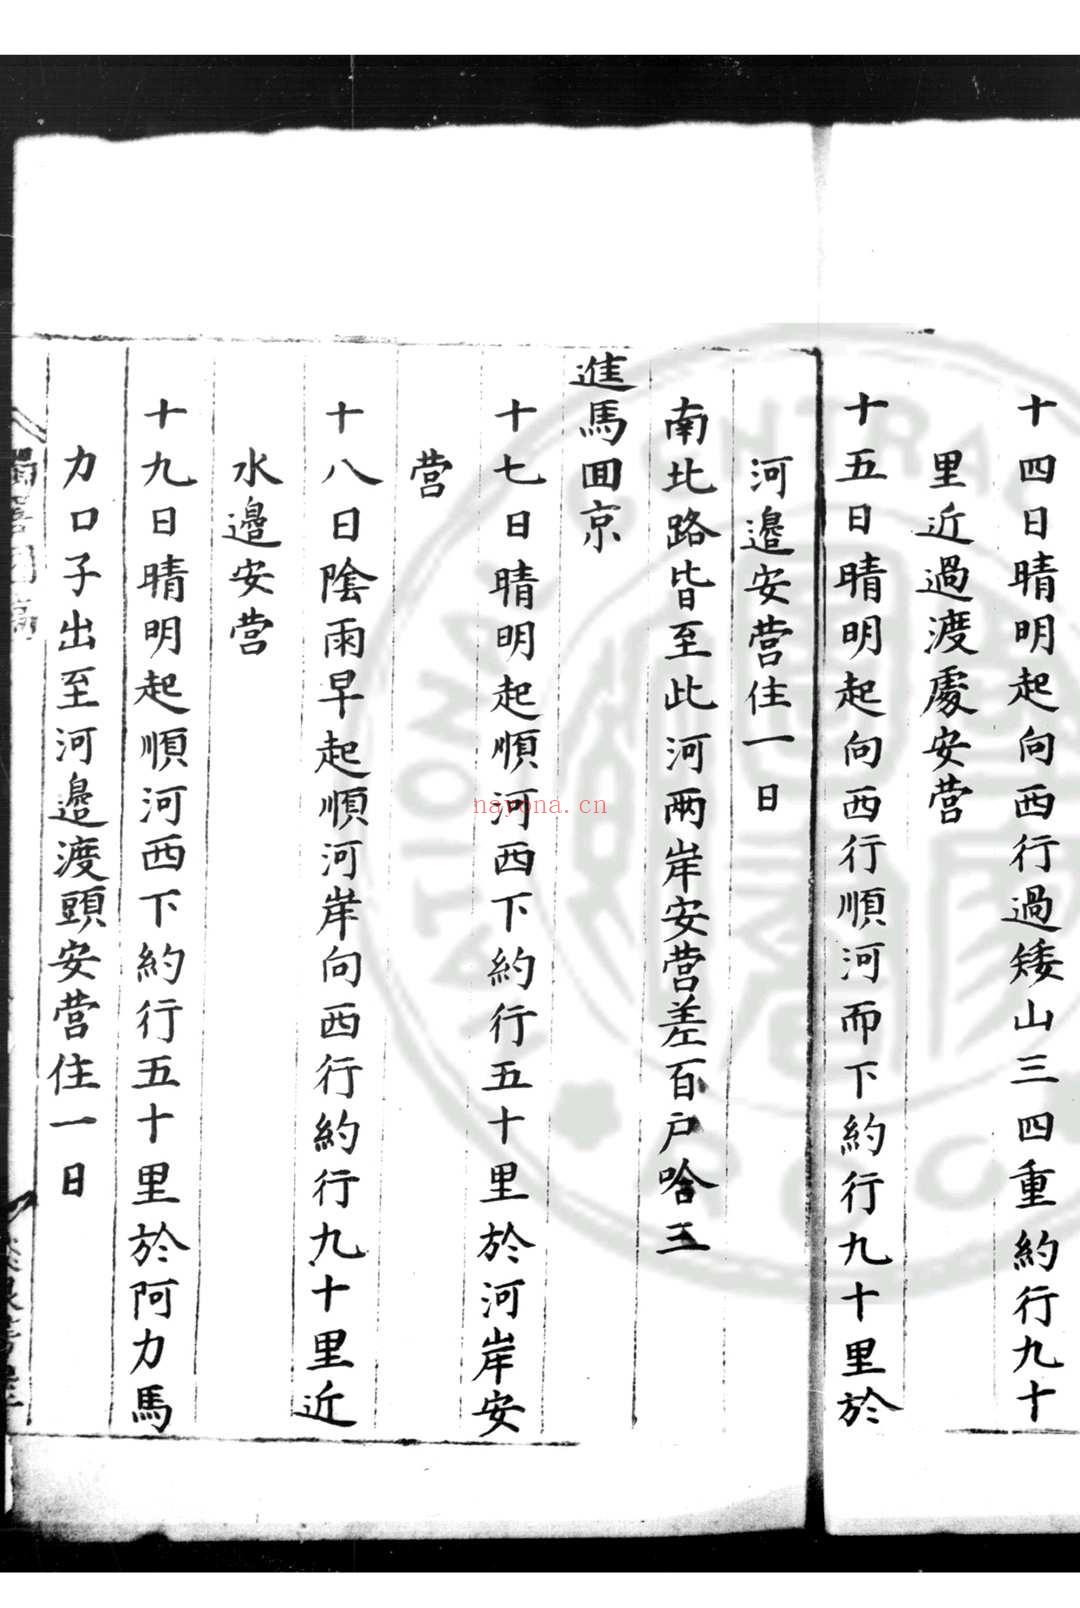 十四日晴明起向西行過矮山三四重約行九十
里近過渡處安营
十五日晴明起向西行順河而下約行九十里於
河邉安营住一日
南北路皆至此河兩岸安营差百户哈三
進馬囬京
十七日晴明起順河西下約行五十里於河岸安
营
十八日隂雨早起順河岸向西行約行九十里近
水邉安营
十九日晴明起順河西下約行五十里於阿力馬
力口子出至河邉渡頭安营住一日
nayona.cn